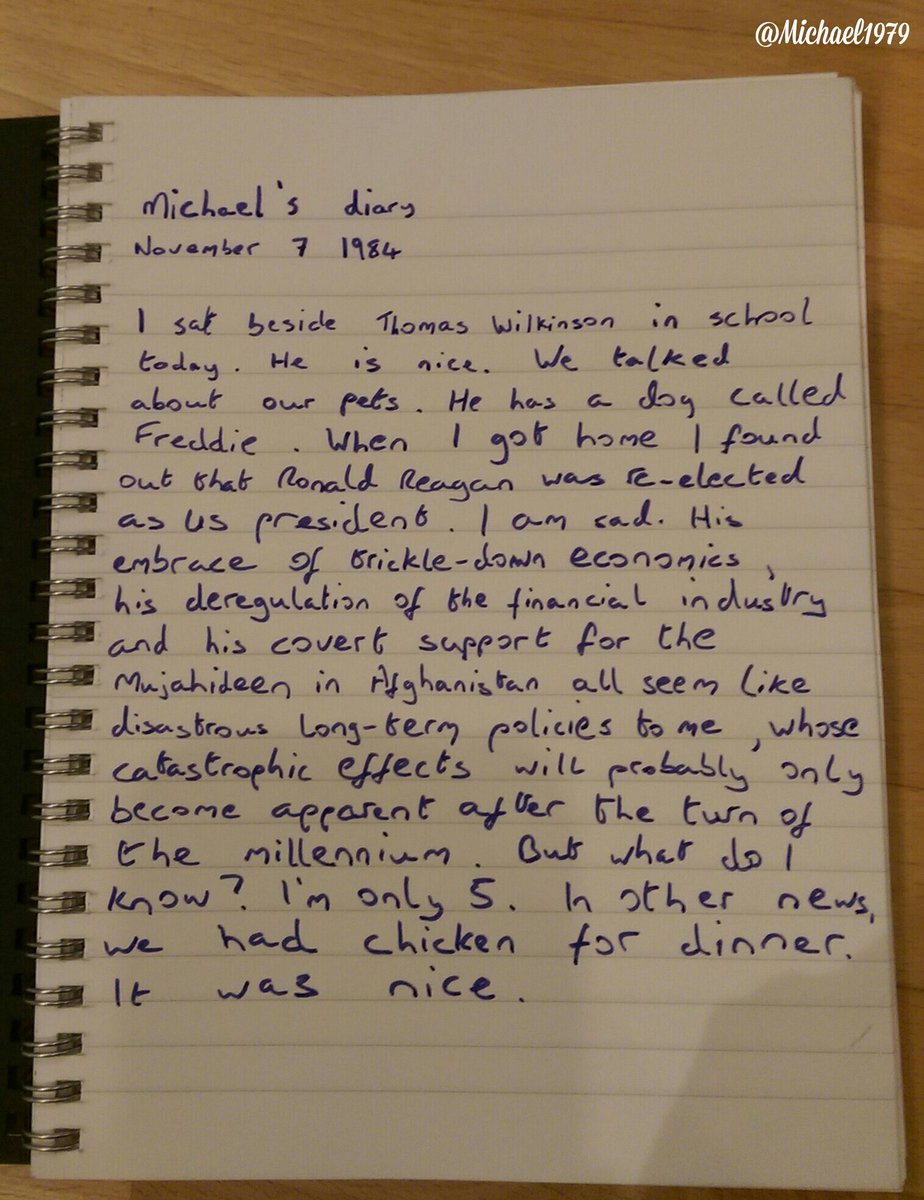 @Michael1979
Michael's diary
November 7 1984
I sat beside Thomas Wilkinson in school
today. He is nice. We talked
about our pets. He has a dog called
Freddie. When I got home I found
out that Ronald Reagan was re-elected
as US president. I am sad. His
embrace of trickle-down economics,
his deregulation of the financial industry
and his covert support for the
Mujahideen in Afghanistan all seem like
disastrous long-term policies to me, whose
catastrophic effects will probably only
become apparent after the turn of
the millennium. But what do I
know? I'm only 5. In other news,
we had chicken for dinner.
It was nice.